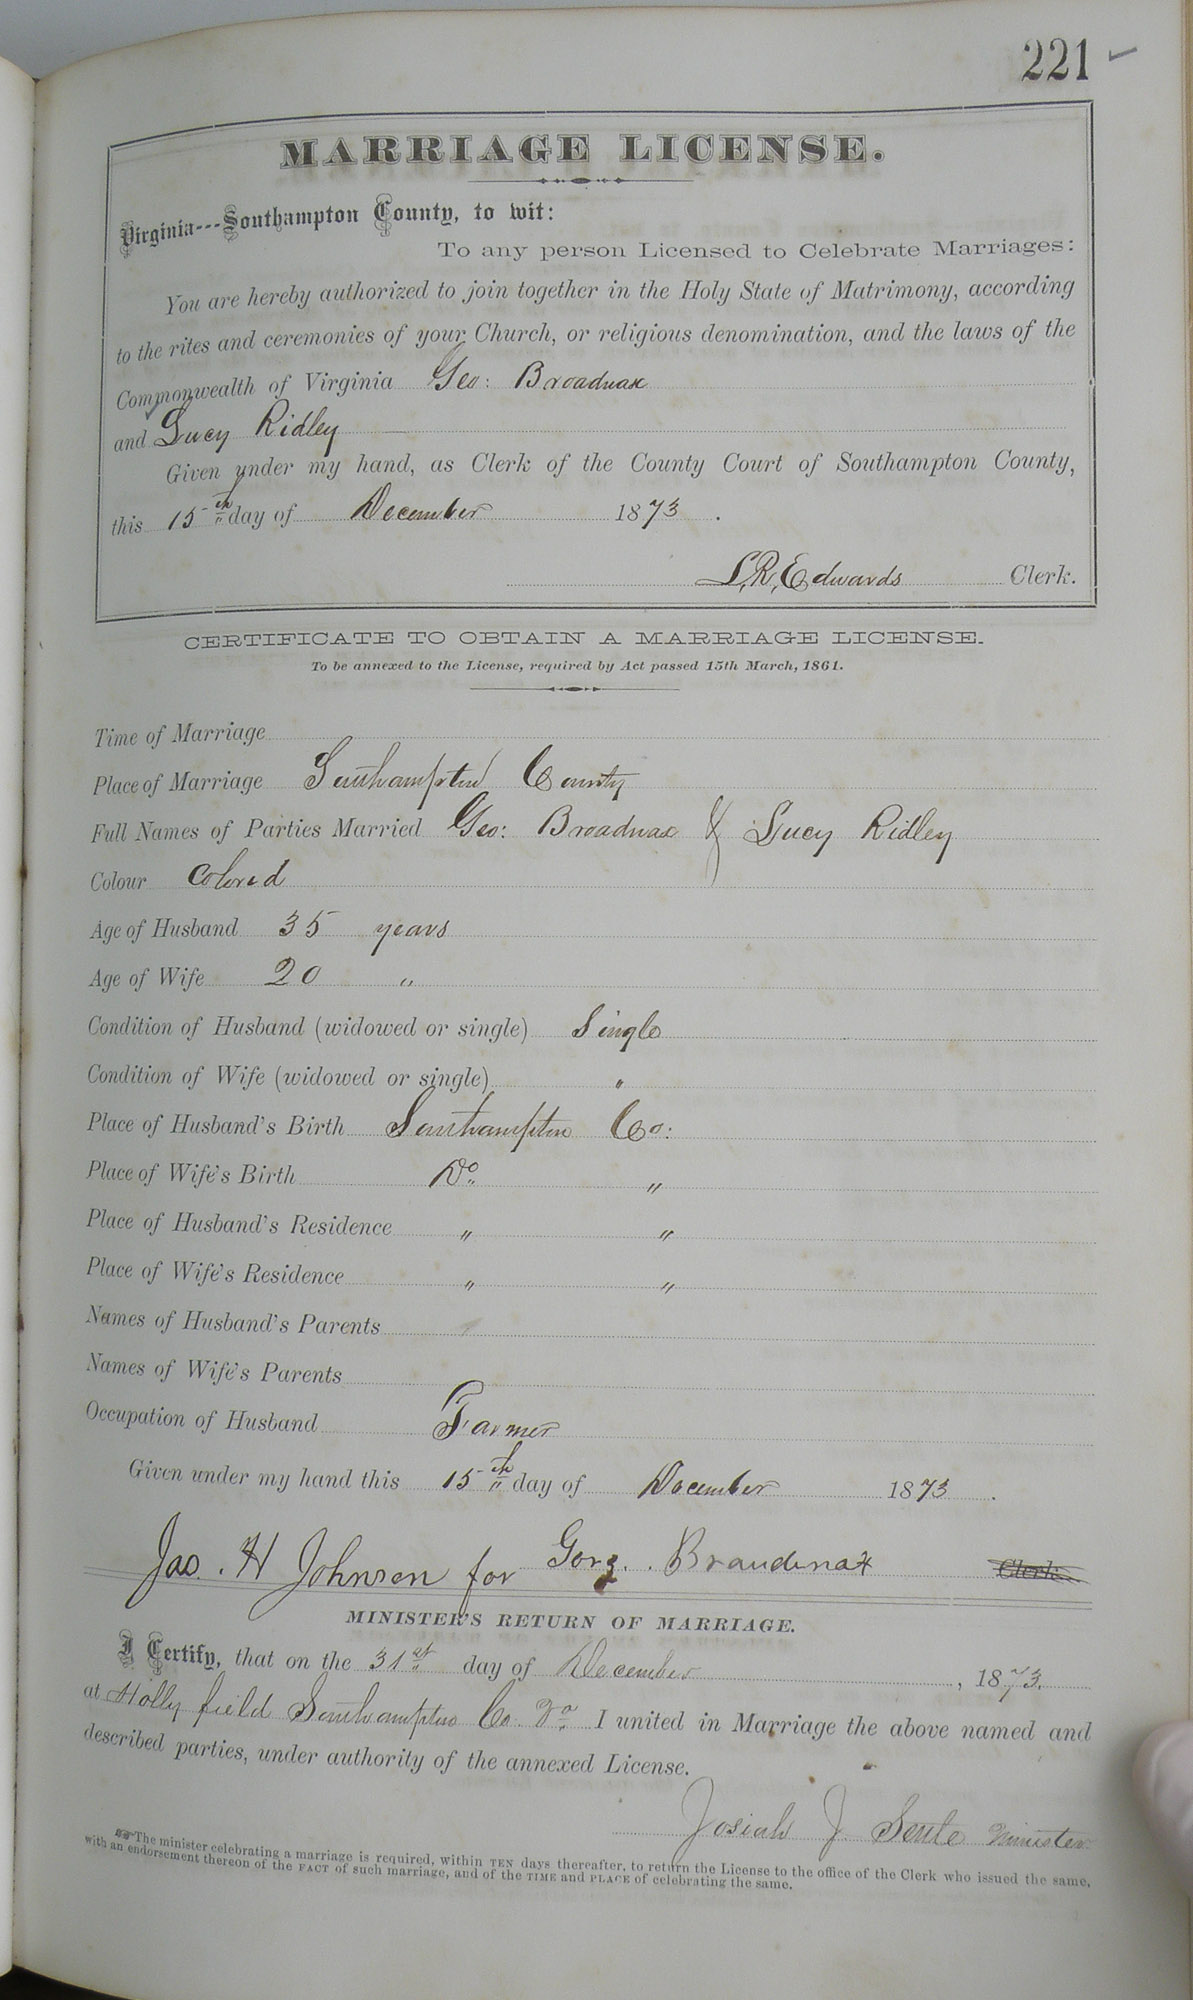 221
MARRIAGE LICENSE.
Virginia---Southampton County, to wit:
To any person Licensed to Celebrate Marriages:
You are hereby authorized to join together in the Holy State of Matrimony, according
to the rites and ceremonies of your Church, or religious denomination, and the laws of the
Commonwealth of Virginia Geo: Broadnax
and Lucy Ridley
Given under my hand, as Clerk of the County Court of Southampton County,
this 15th day of December 1873.
L. R. Edwards Clerk.
CERTIFICATE TO OBTAIN A MARRIAGE LICENSE.
To be annexed to the License, required by Act passed 15th March, 1861.
Time of Marriage
Place of Marriage Southampton County
Full Names of Parties Married Geo: Broadnax & Lucy Ridley
Colour Colored
Age of Husband 35 years
Age of Wife 20 "
Condition of Husband (widowed or single) Single
Condition of Wife (widowed or single) "
Place of Husband's Birth Southampton Co:
Place of Wife's Birth Do "
Place of Husband's Residence " "
Place of Wife's Residence " "
Names of Husband's Parents
Names of Wife's Parents
Occupation of Husband Farmer
Given under my hand this 15th day of December 1873.
Jas. H Johnson for Gorg. Braudnax Clerk.
MINISTER'S RETURN OF MARRIAGE.
I Certify, that on the 31st day of December, 1873.
at Holly field Southampton Co. Va. I united in Marriage the above named and
described parties, under authority of the annexed License.
Josiah J. Minister
☞ The minister celebrating a marriage is required, within TEN days thereafter, to return the License to the office of the Clerk who issued the same,
with an endorsement thereon of the FACT of such marriage, and of the TIME and PLACE of celebrating the same.